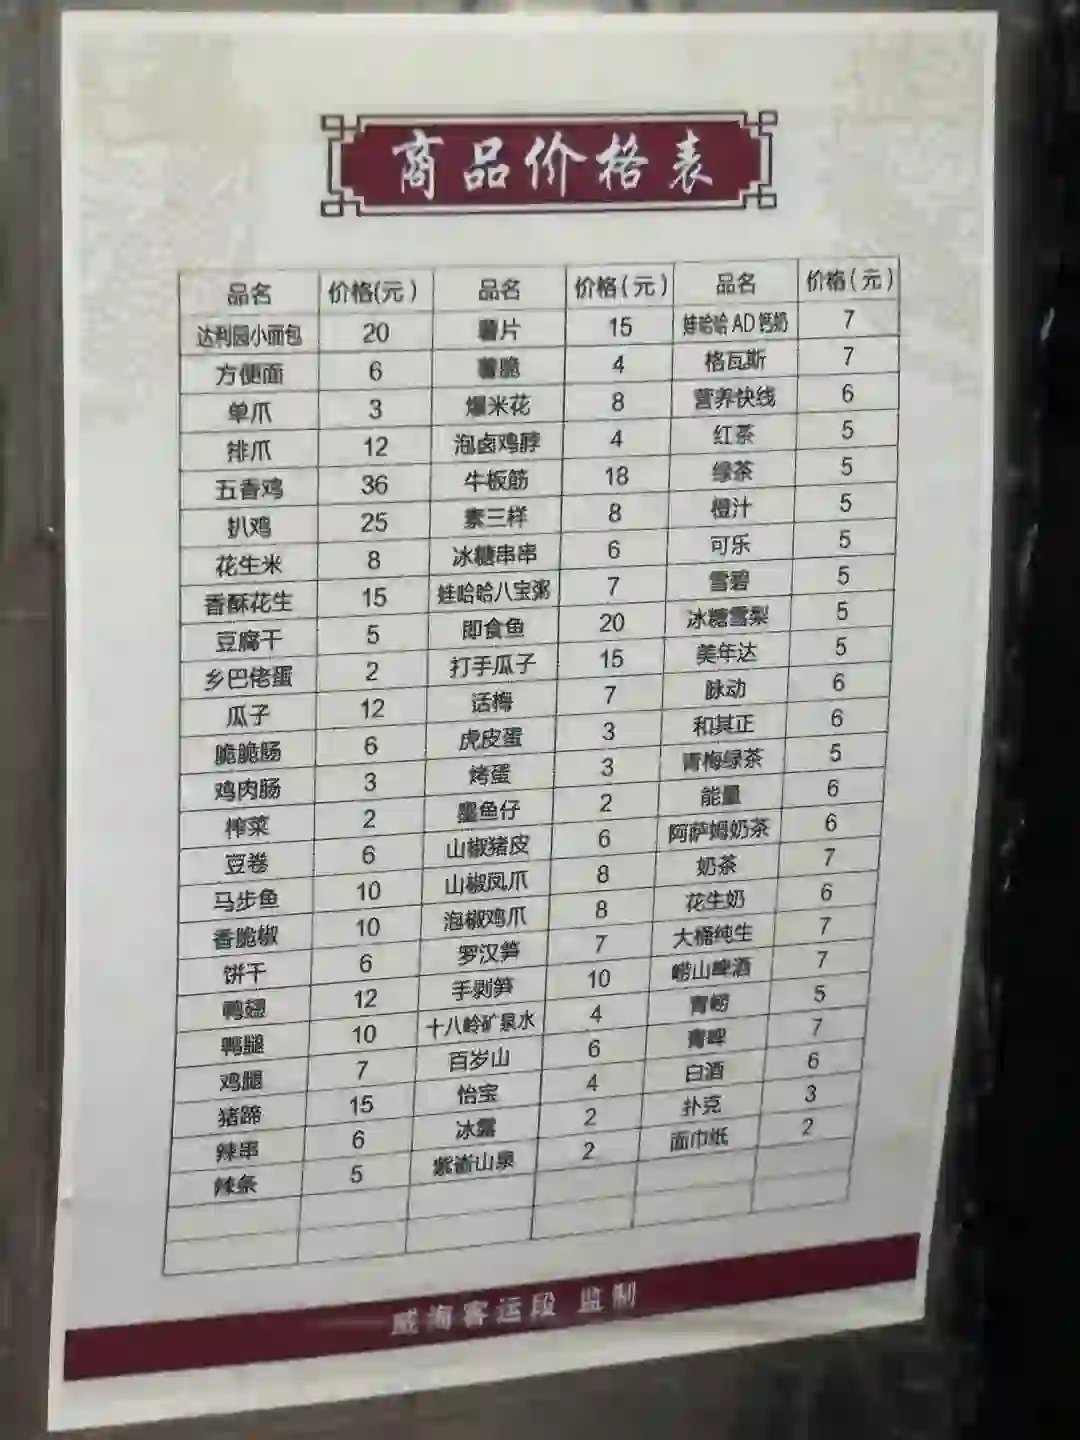 商品价格表
品名 价格(元) 品名 价格(元) 品名 价格(元)
达利园小面包 20 薯片 15 娃哈哈AD钙奶 7
方便面 6 薯脆 4 格瓦斯 7
单爪 3 爆米花 8 营养快线 6
排爪 12 泡卤鸡脖 4 红茶 5
五香鸡 36 牛板筋 18 绿茶 5
扒鸡 25 素三样 8 橙汁 5
花生米 8 冰糖串串 6 可乐 5
香酥花生 15 娃哈哈八宝粥 7 雪碧 5
豆腐干 5 即食鱼 20 冰糖雪梨 5
乡巴佬蛋 2 打手瓜子 15 美年达 5
瓜子 12 话梅 7 脉动 6
脆脆肠 6 虎皮蛋 3 和其正 6
鸡肉肠 3 烤蛋 3 青梅绿茶 5
榨菜 2 墨鱼仔 2 能量 6
豆卷 6 山椒猪皮 6 阿萨姆奶茶 6
马步鱼 10 山椒凤爪 8 奶茶 7
香脆椒 10 泡椒鸡爪 8 花生奶 6
饼干 6 罗汉笋 7 大桶纯生 7
鸭翅 12 手剥笋 10 崂山啤酒 7
鸭腿 10 十八岭矿泉水 4 青崂 5
鸡腿 7 百岁山 6 青啤 7
猪蹄 15 怡宝 4 白酒 6
辣串 6 冰露 2 扑克 3
辣条 5 紫崮山泉 2 面巾纸 2
威海客运段 监制